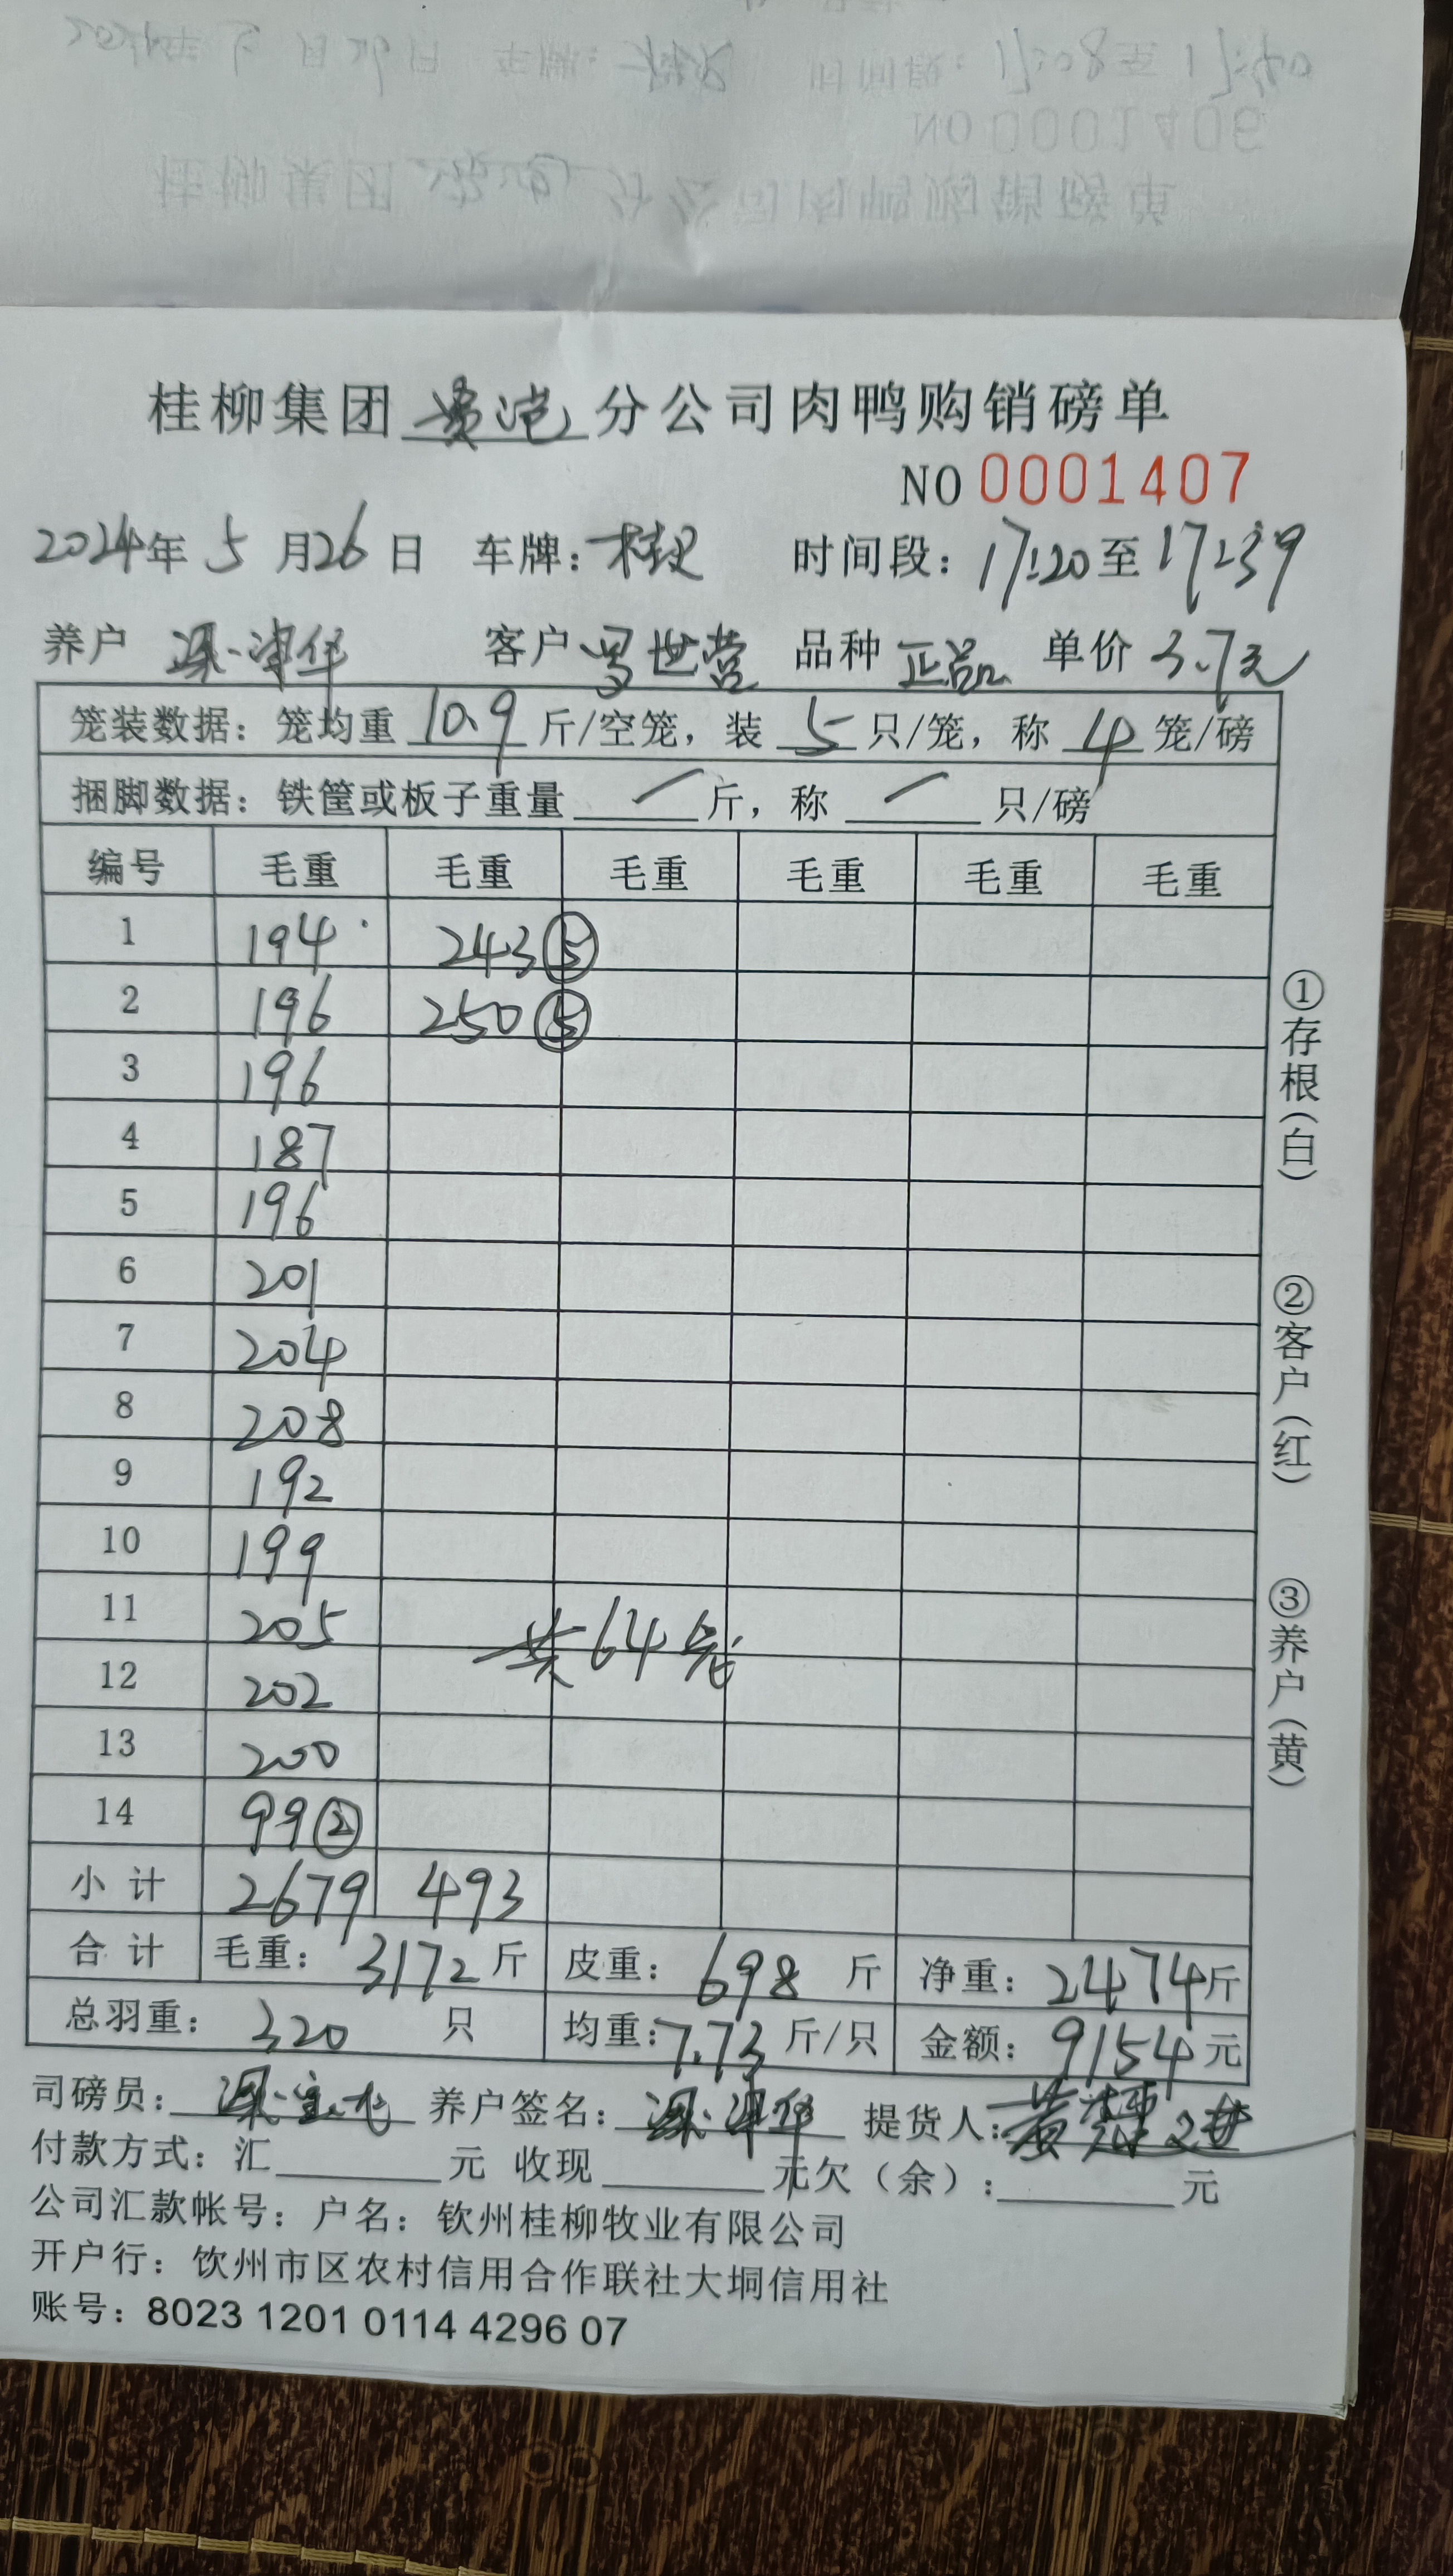 桂柳集团贵港分公司肉鸭购销磅单
NO 0001407
2024年 5 月26日 车牌: 时间段: 17:20至17:39
养户 梁津华 客户 冯世营 品种 正品 单价 3.7元
笼装数据: 笼均重 10.9 斤/空笼, 装 5 只/笼, 称 4 笼/磅
捆脚数据: 铁筐或板子重量 / 斤, 称 / 只/磅
编号 毛重 毛重 毛重 毛重 毛重 毛重
1 194 243⑤
2 196 250⑤
3 196
4 187
5 196
6 201
7 204
8 208
9 192
10 199
11 205 共64笼
12 202
13 200
14 99②
小计 2679 493
合计 毛重: 3172斤 皮重: 698 斤 净重: 2474斤
总羽重: 320 只 均重:7.73 斤/只 金额: 9154元
司磅员: 养户签名: 梁津华 提货人:
付款方式: 汇 元 收现 元欠(余): 元
公司汇款帐号: 户名: 钦州桂柳牧业有限公司
开户行: 饮州市区农村信用合作联社大垌信用社
账号: 8023 1201 0114 4296 07
①存根(白) ②客户(红) ③养户(黄)